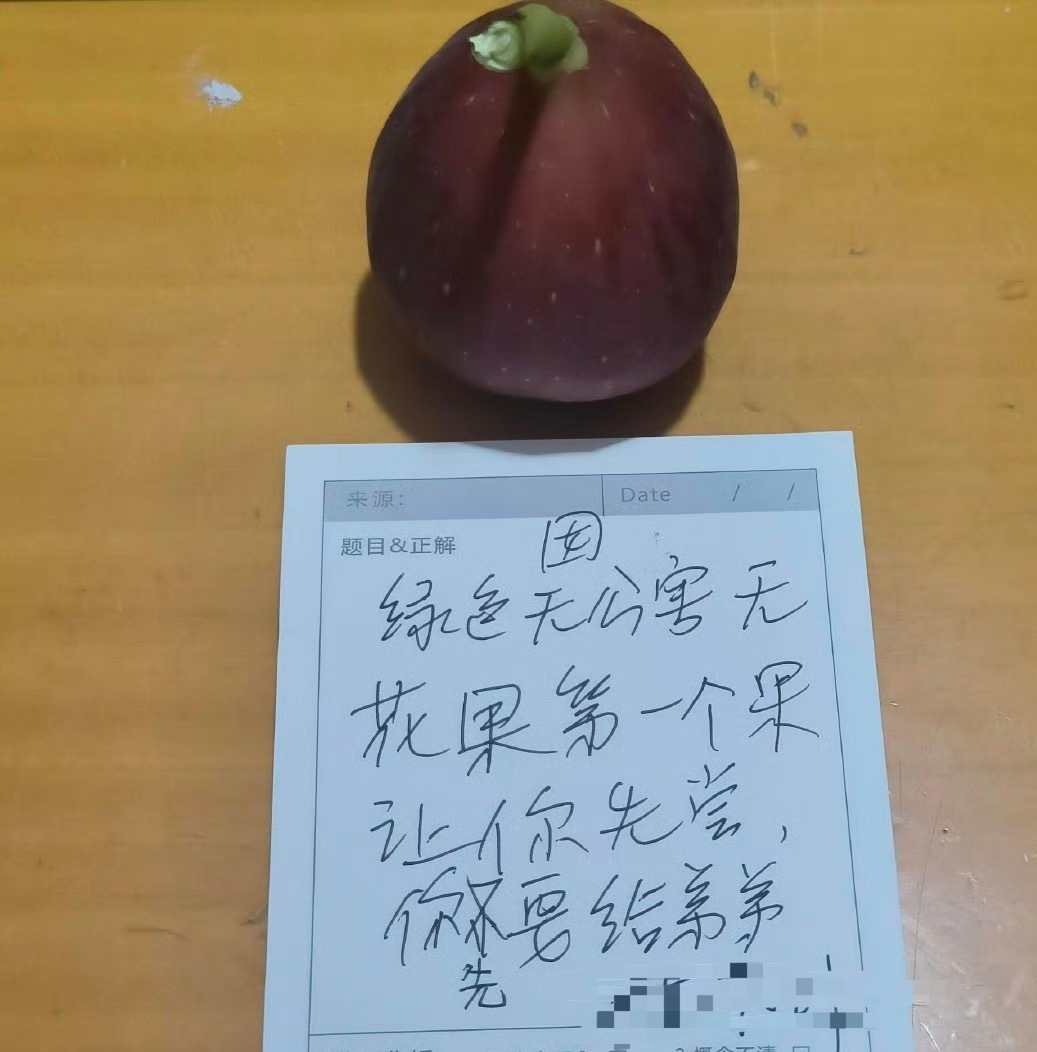 来源: Date / /
题目&正解
囡
绿色无公害无
花果第一个果
让你先尝,
你不要给弟弟
先